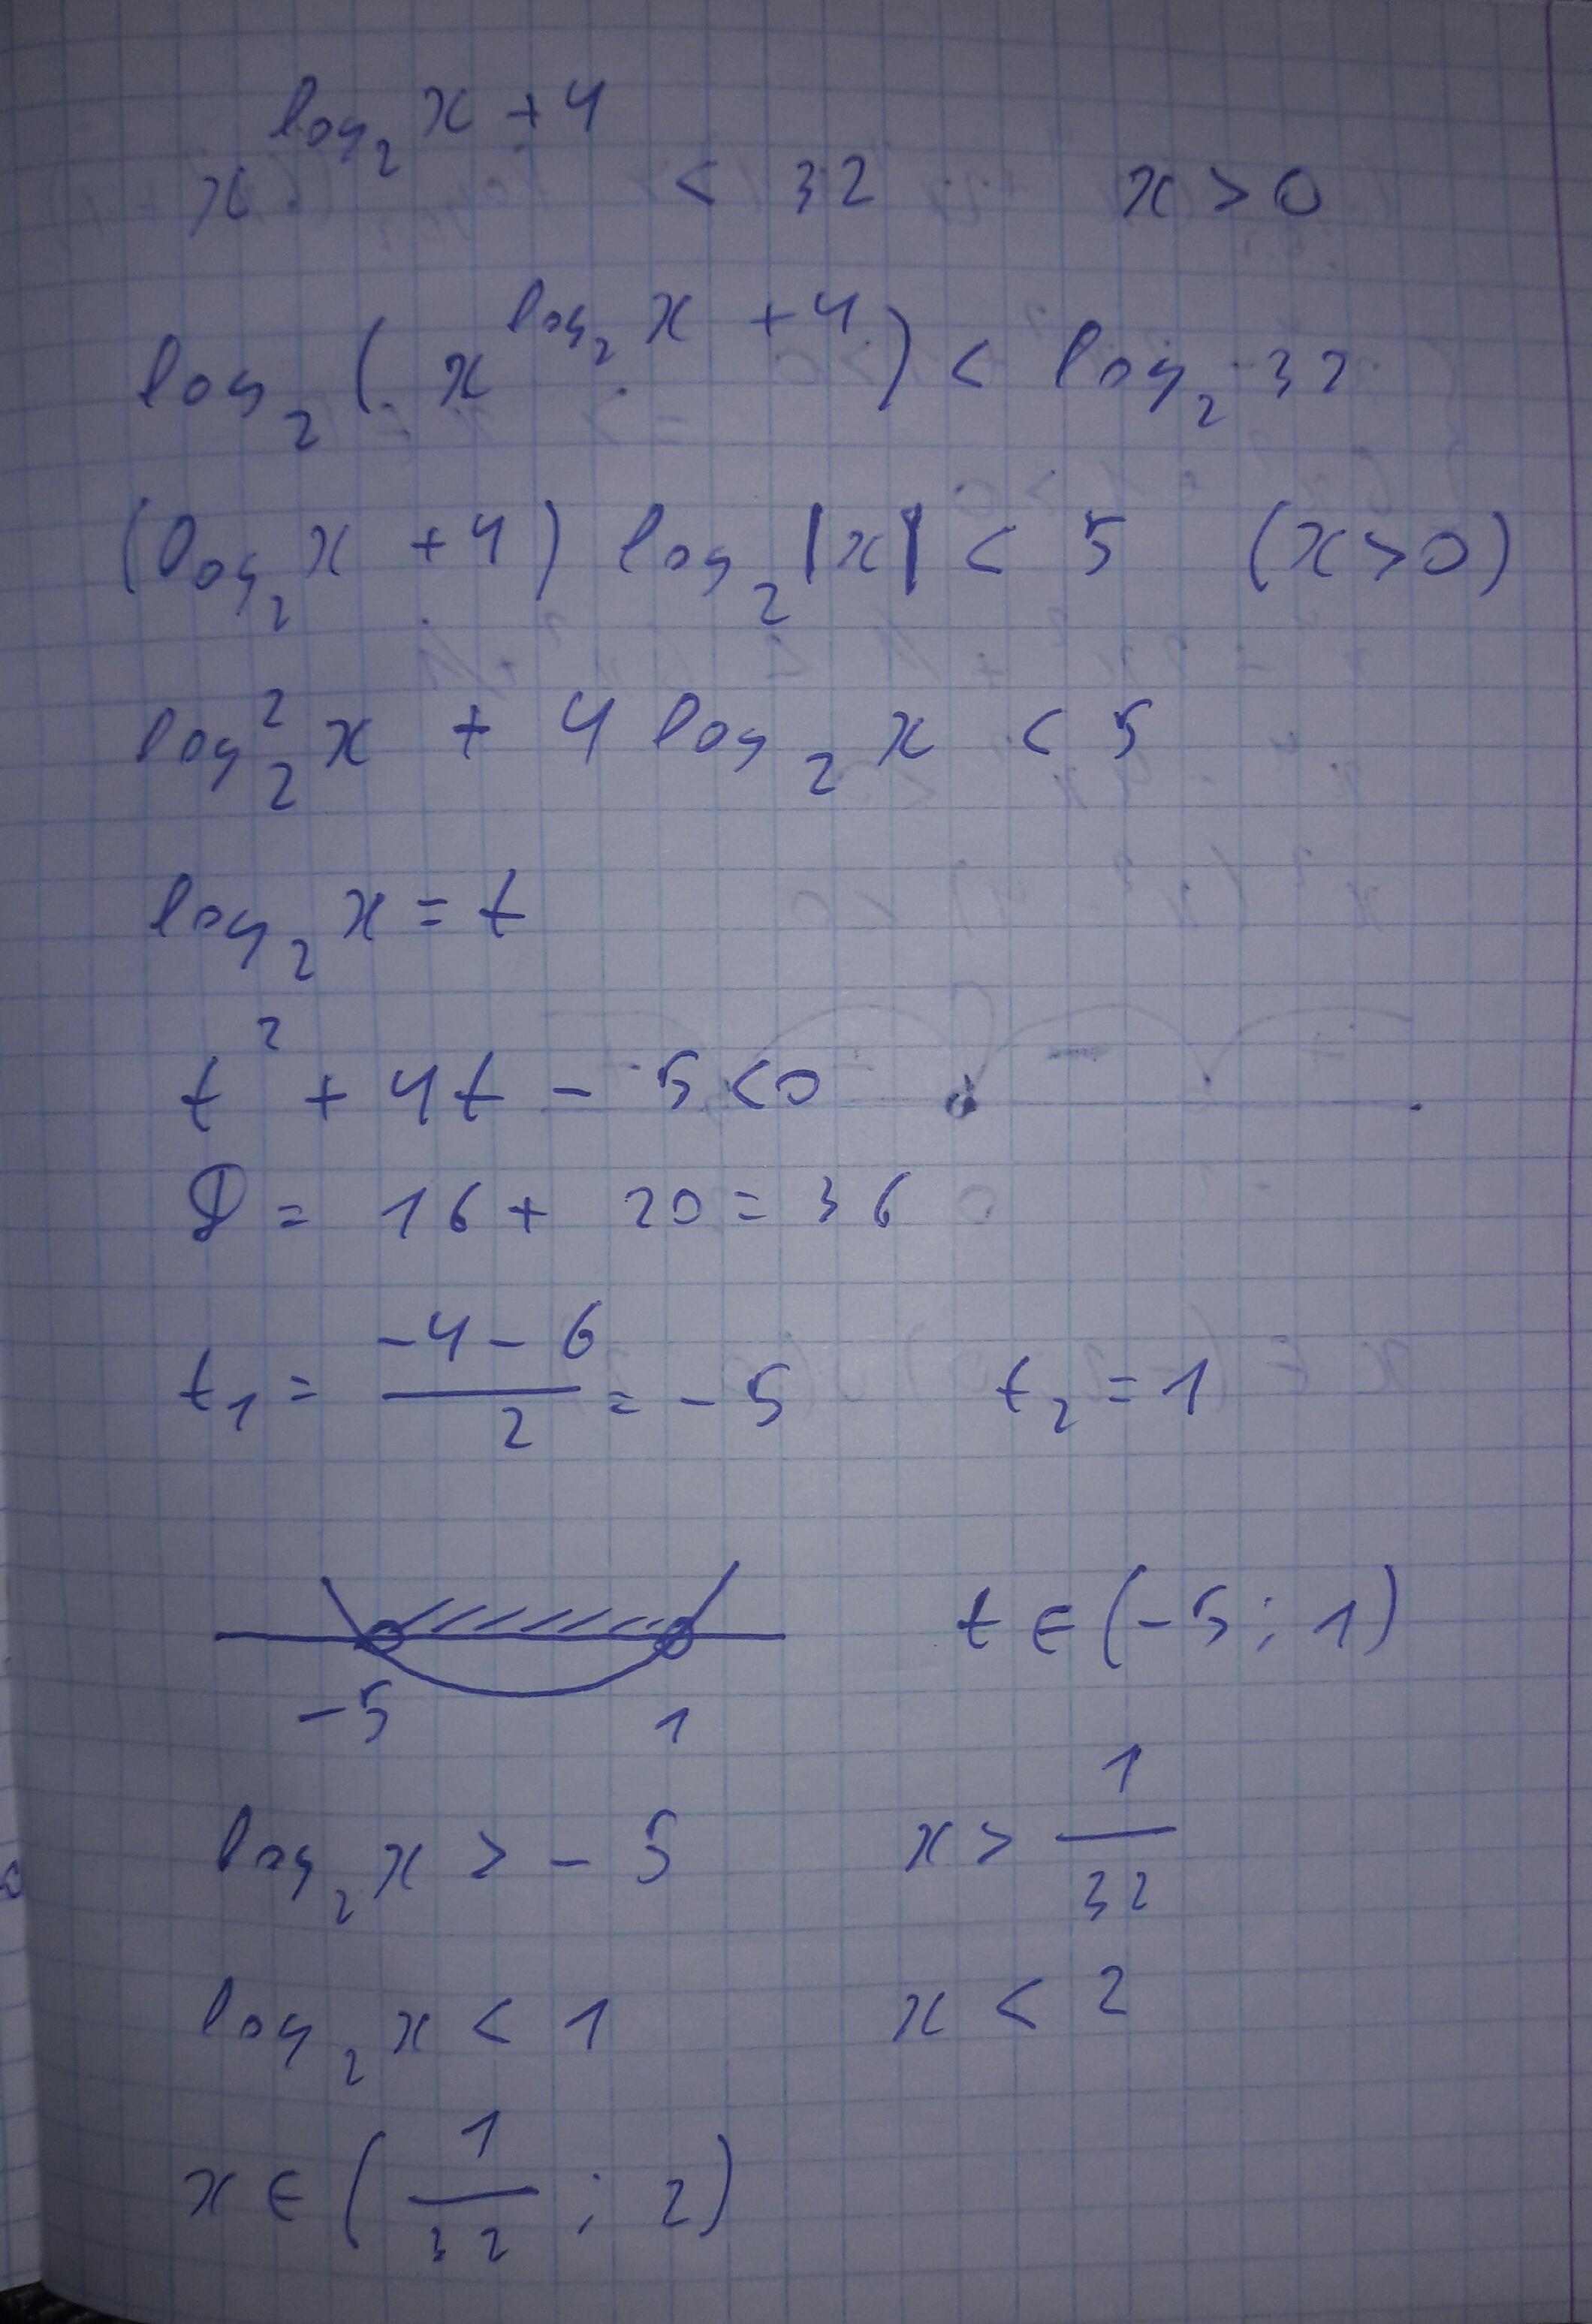 x^{log_2 x + 4} < 32 x > 0
log_2 ( x^{log_2 x + 4} ) < log_2 32
(log_2 x + 4) log_2 |x| < 5 (x > 0)
log_2^2 x + 4 log_2 x < 5
log_2 x = t
t^2 + 4t - 5 < 0
D = 16 + 20 = 36
t_1 = \frac{-4 - 6}{2} = -5 t_2 = 1
-5 1 t ∈ (-5 ; 1)
log_2 x > -5 x > \frac{1}{32}
log_2 x < 1 x < 2
x ∈ ( \frac{1}{32} ; 2)